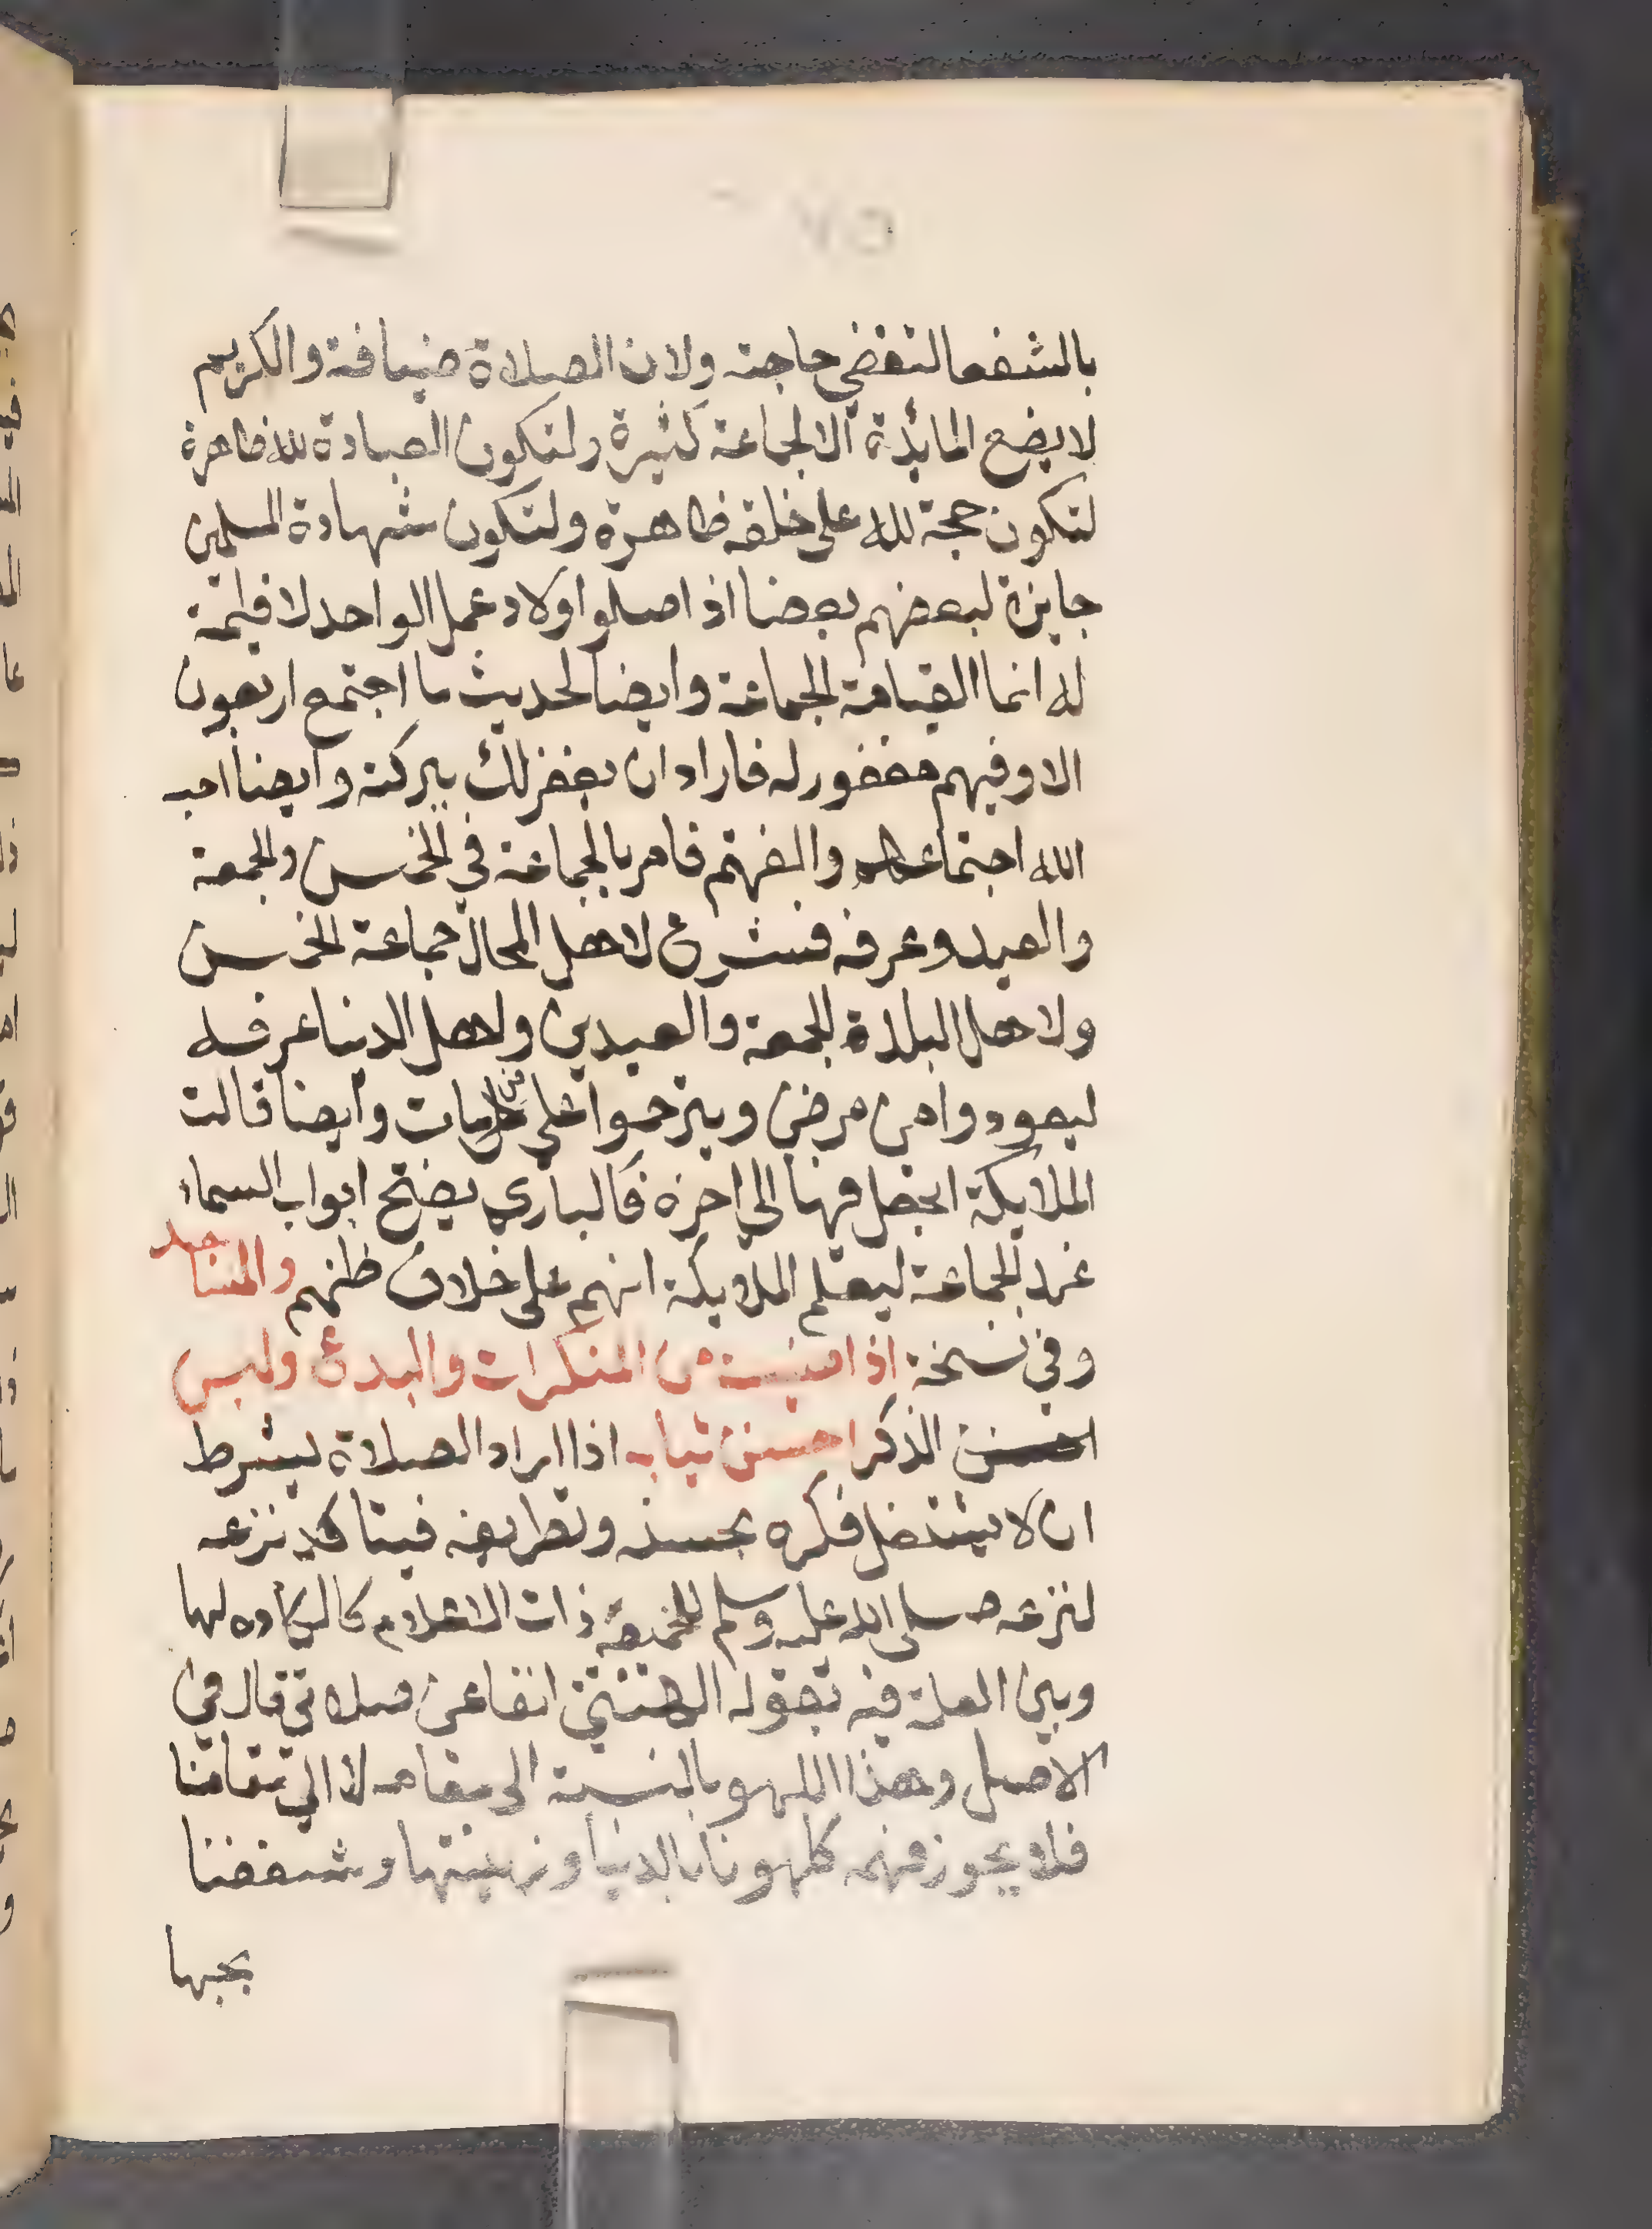 بالشفعا لتقضي حاجته ولان الصلاة ضيافة والكريم
لا يضع المائدة الا لجماعة كثيرة ولتكون العبادة لله ظاهرة
لتكون حجة لله على خلقه ظاهرة ولتكون شهادة المسلمين
جايزة لبعضهم بعضا اذا صلوا ولان عمل الواحد لا قيمة
له انما القيامة الجماعة وايضا لحديث ما اجتمع اربعون
الا وفيهم مغفور له فاراد ان يغفر لك ببركته وايضا احب
الله اجتماعهم والفتهم فامر بالجماعة في الخمس والجمعة
والعيد وعرفه فشرع لاهل المحال جماعة الخمس
ولاهل البلدة الجمعة والعيدين ولاهل الدنيا عرفه
ليعودوا من مرض ويترحموا على من مات وايضا قالت
الملايكة اتجعل فيها الى اخره فالباري يفتح ابواب السماء
عند الجماعة ليعلم الملايكة انهم على خلاف ظنهم والمساجد
وفي نسخة اذا امنت من المنكرات والبدع ولبس
الذكر احسن ثيابه اذا اراد الصلاة بشرط
ان لا يشتغل فكره بحسنه وتطريفه فيتاكد نزعه
لنزعه صلى الله عليه وسلم الخميصة ذات الاعلام كالكاره لها
وبين العلة فيه بقوله الهتني انفا عن صلاتي قال في
الاصل وهذا اللهو بالنسبة الى مقامه لا الى مقامنا
فلا يجوز فهمه كلهونا بالدنيا وزينتها وشغفنا
بحبها